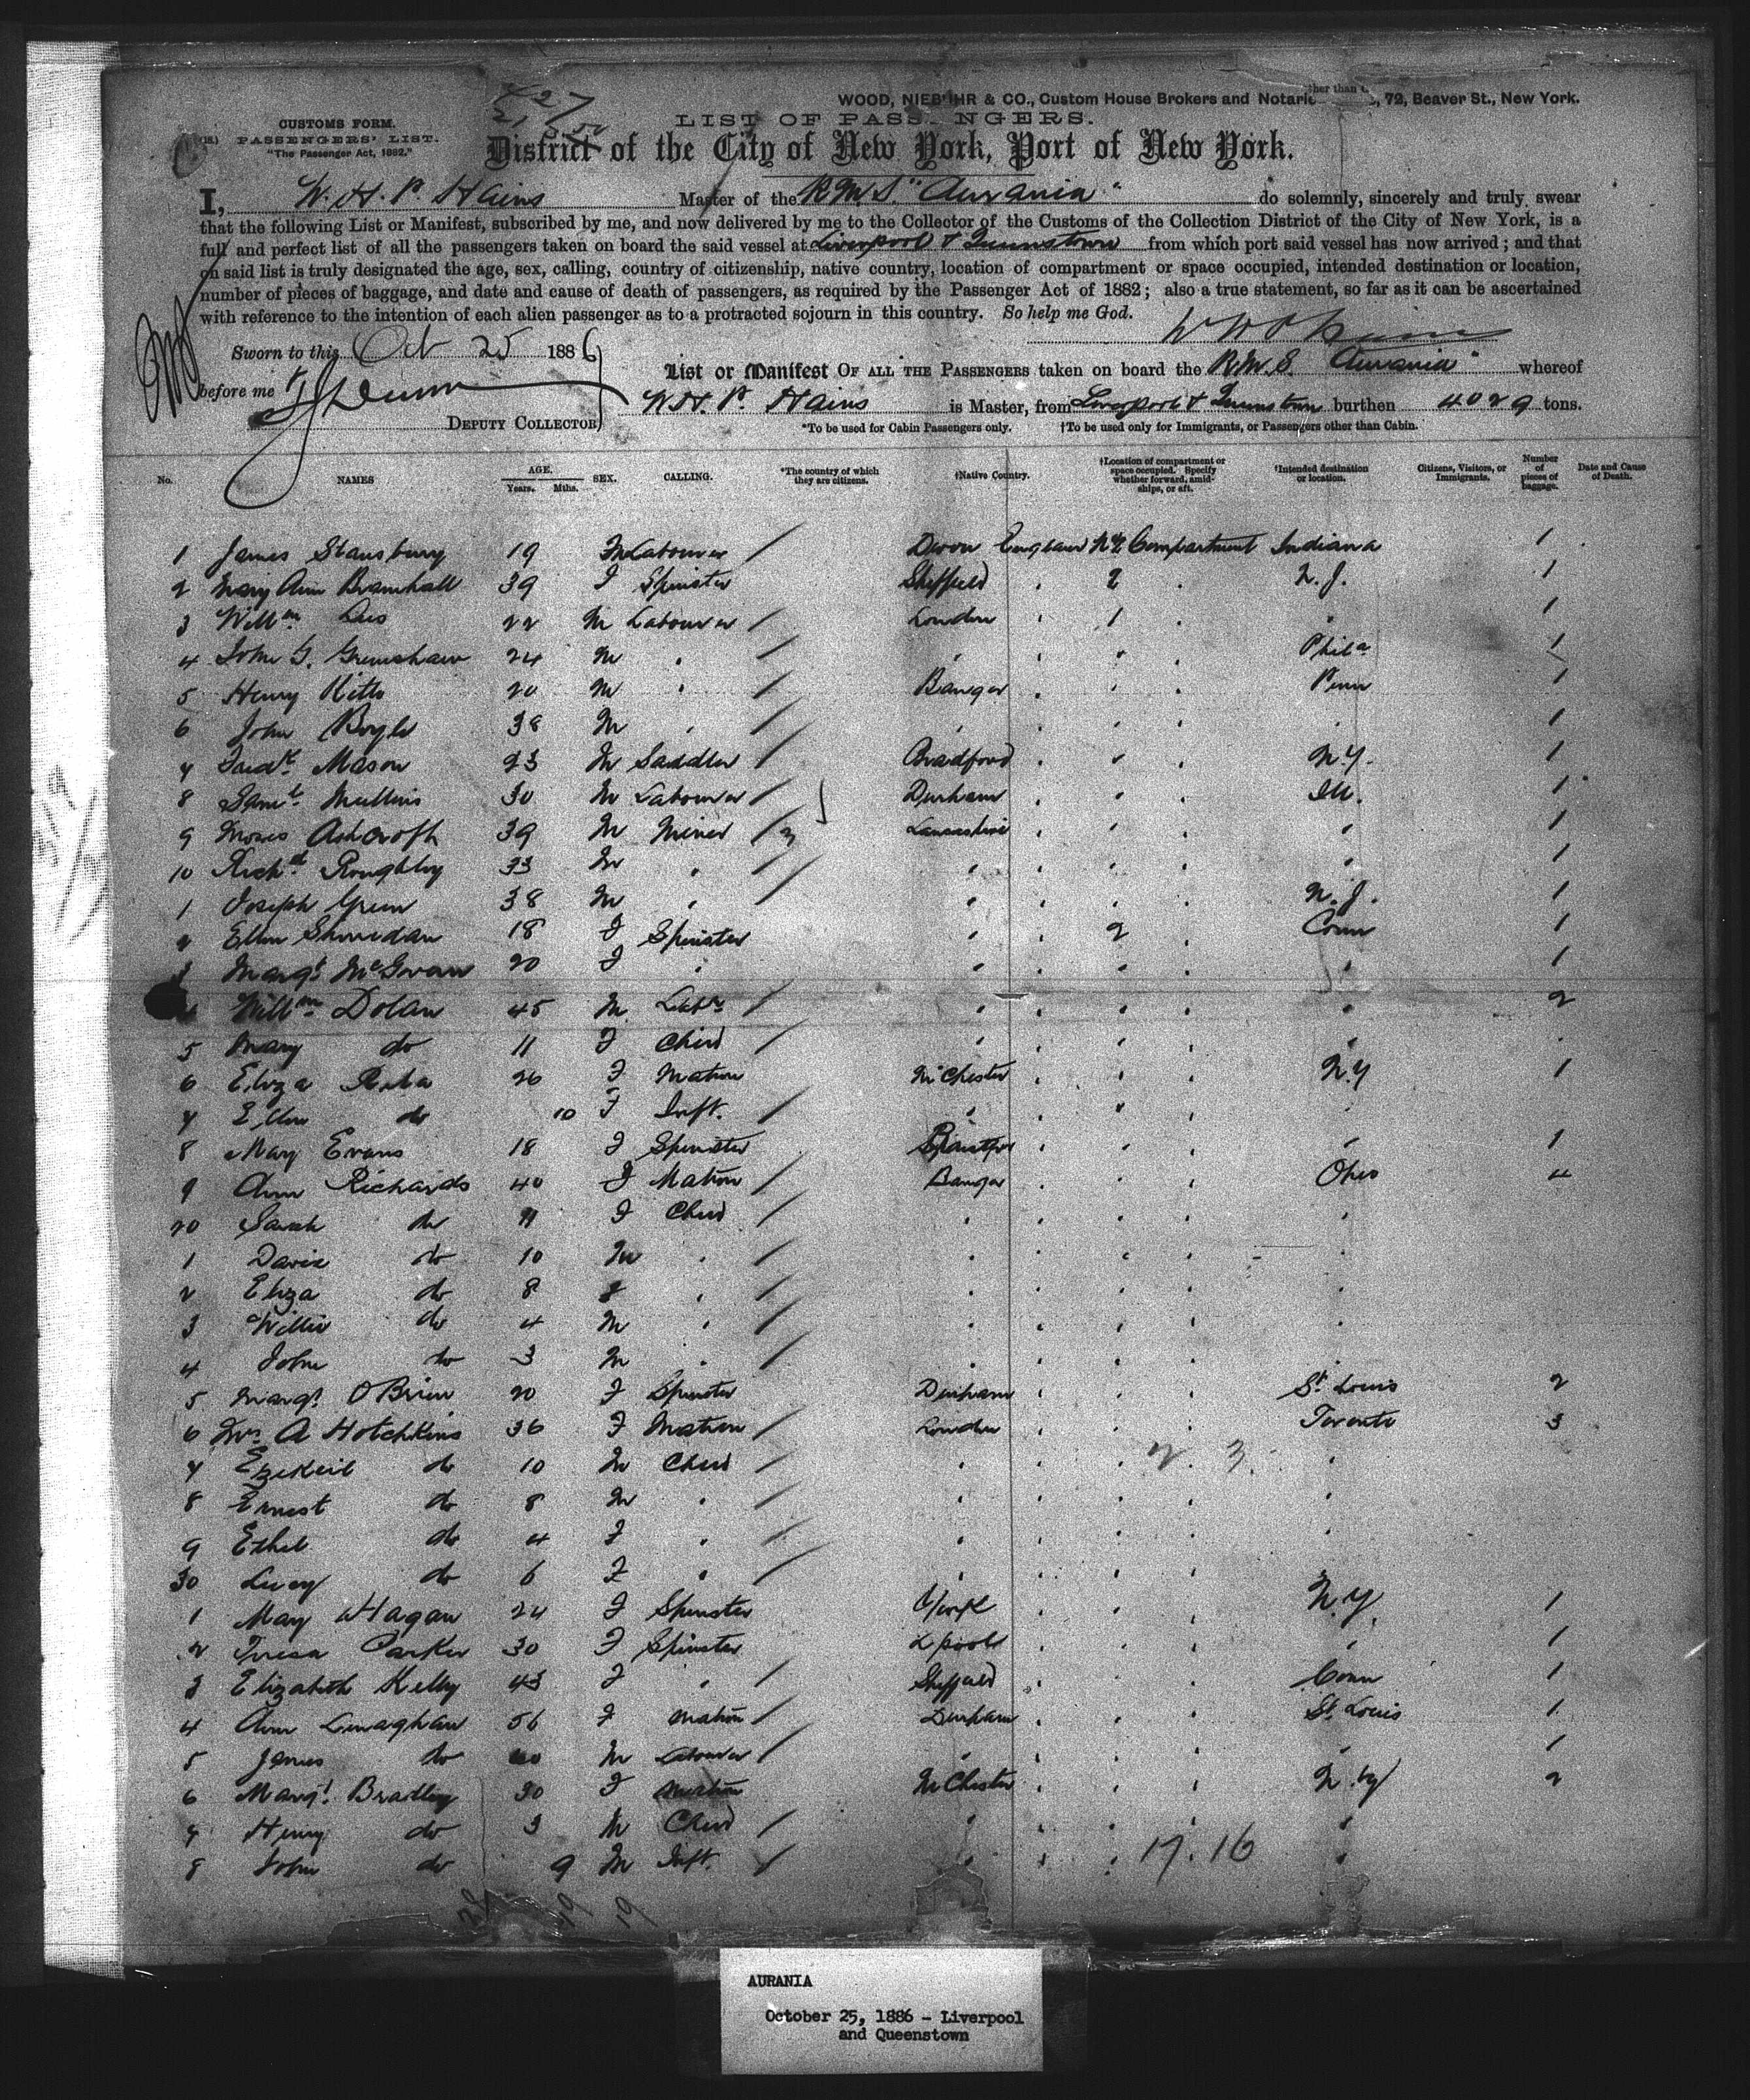 WOOD, NIEBUHR & CO., Custom House Brokers and Notaries, 72, Beaver St., New York.
CUSTOMS FORM.
PASSENGERS' LIST.
"The Passenger Act, 1882."
LIST OF PASSENGERS.
District of the City of New York, Port of New York.
I, W. H. P. Hains Master of the R.M.S. "Aurania" do solemnly, sincerely and truly swear
that the following List or Manifest, subscribed by me, and now delivered by me to the Collector of the Customs of the Collection District of the City of New York, is a
full and perfect list of all the passengers taken on board the said vessel at Liverpool & Queenstown from which port said vessel has now arrived; and that
on said list is truly designated the age, sex, calling, country of citizenship, native country, location of compartment or space occupied, intended destination or location,
number of pieces of baggage, and date and cause of death of passengers, as required by the Passenger Act of 1882; also a true statement, so far as it can be ascertained
with reference to the intention of each alien passenger as to a protracted sojourn in this country. So help me God.
Sworn to this Oct 25 1886
before me
DEPUTY COLLECTOR
List or Manifest OF ALL THE PASSENGERS taken on board the R.M.S. "Aurania" whereof
W.H. P. Hains is Master, from Liverpool & Queenstown burthen 4029 tons.
*To be used for Cabin Passengers only. †To be used only for Immigrants, or Passengers other than Cabin.
No. NAMES AGE. Years. Mths. SEX. CALLING. *The country of which they are citizens. †Native Country. †Location of compartment or space occupied. Specify whether forward, amidships, or aft. †Intended destination or location. Citizens, Visitors, or Immigrants. Number of pieces of baggage. Date and Cause of Death.
1 James Stansbury 19 M Labourer / Devon England No 2 Compartment Indiana 1
2 Mary Ann Bramhall 39 F Spinster Sheffield " 2 " N.J. 1
3 Willm. Lees 22 M Labourer / London " 1 " " 1
4 John G. Grimshaw 24 M " / " " " " Phila 1
5 Henry Kitto 20 M " / Bangor " " " Penn 1
6 John Boyle 38 M " / " " " " " 1
7 Fredk. Mason 23 M Saddler / Bradford " " " N.Y. 1
8 Saml. Mullins 30 M Labourer / Durham " " " Ill. 1
9 Moses Ashcroft 39 M Miner / 3 Lancashire " " " " 1
10 Richd. Roughley 33 M " / " " " " " 1
1 Joseph Green 38 M " / " " " " N.J. 1
2 Ellen Sheridan 18 F Spinster " " 2 " Conn 1
3 Margt. McGowan 20 F " " " " " " 1
4 Willm. Dolan 45 M Labr / " " " " " 2
5 Mary do 11 F Child / " " " " "
6 Eliza 26 F Matron M'Chester " " " N.Y 1
7 Ellen do 10 F Inft. / " " " " "
8 Mary Evans 18 F Spinster " " " " 1
9 Ann Richards 40 F Matron / Bangor " " " Ohio 4
20 Sarah do 11 F Child / " " " " "
1 David do 10 M " / " " " " "
2 Eliza do 8 F " / " " " " "
3 Willie do 4 M " / " " " " "
4 John do 3 M " / " " " " "
5 Margt. O'Brien 20 F Spinster Durham " " " St. Louis 2
6 Mrs. A Hotchkins 36 F Matron / London " " " Toronto 3
7 Ezekeil do 10 M Child / " " " " 2. 3. "
8 Ernest do 8 M " / " " " " "
9 Ethel do 4 F " / " " " " "
30 Lucy do 6 F " / " " " " "
1 Mary Hagan 24 F Spinster York " " " N.Y. 1
2 Tresa Parker 30 F Spinster L'pool " " " " 1
3 Elizabeth Kelly 43 F " / Sheffield " " " Conn 1
4 Ann Linaghan 56 F Matron / Durham " " " St. Louis 1
5 James do M Labourer / " " " " " 1
6 Margt. Bradley 30 F Matron M'Chester " " " N.Y 2
7 Henry do 3 M Child / " " " " "
8 John do 9 M Inft. / " " " " 17.16 "
19 19
AURANIA
October 25, 1886 - Liverpool
and Queenstown